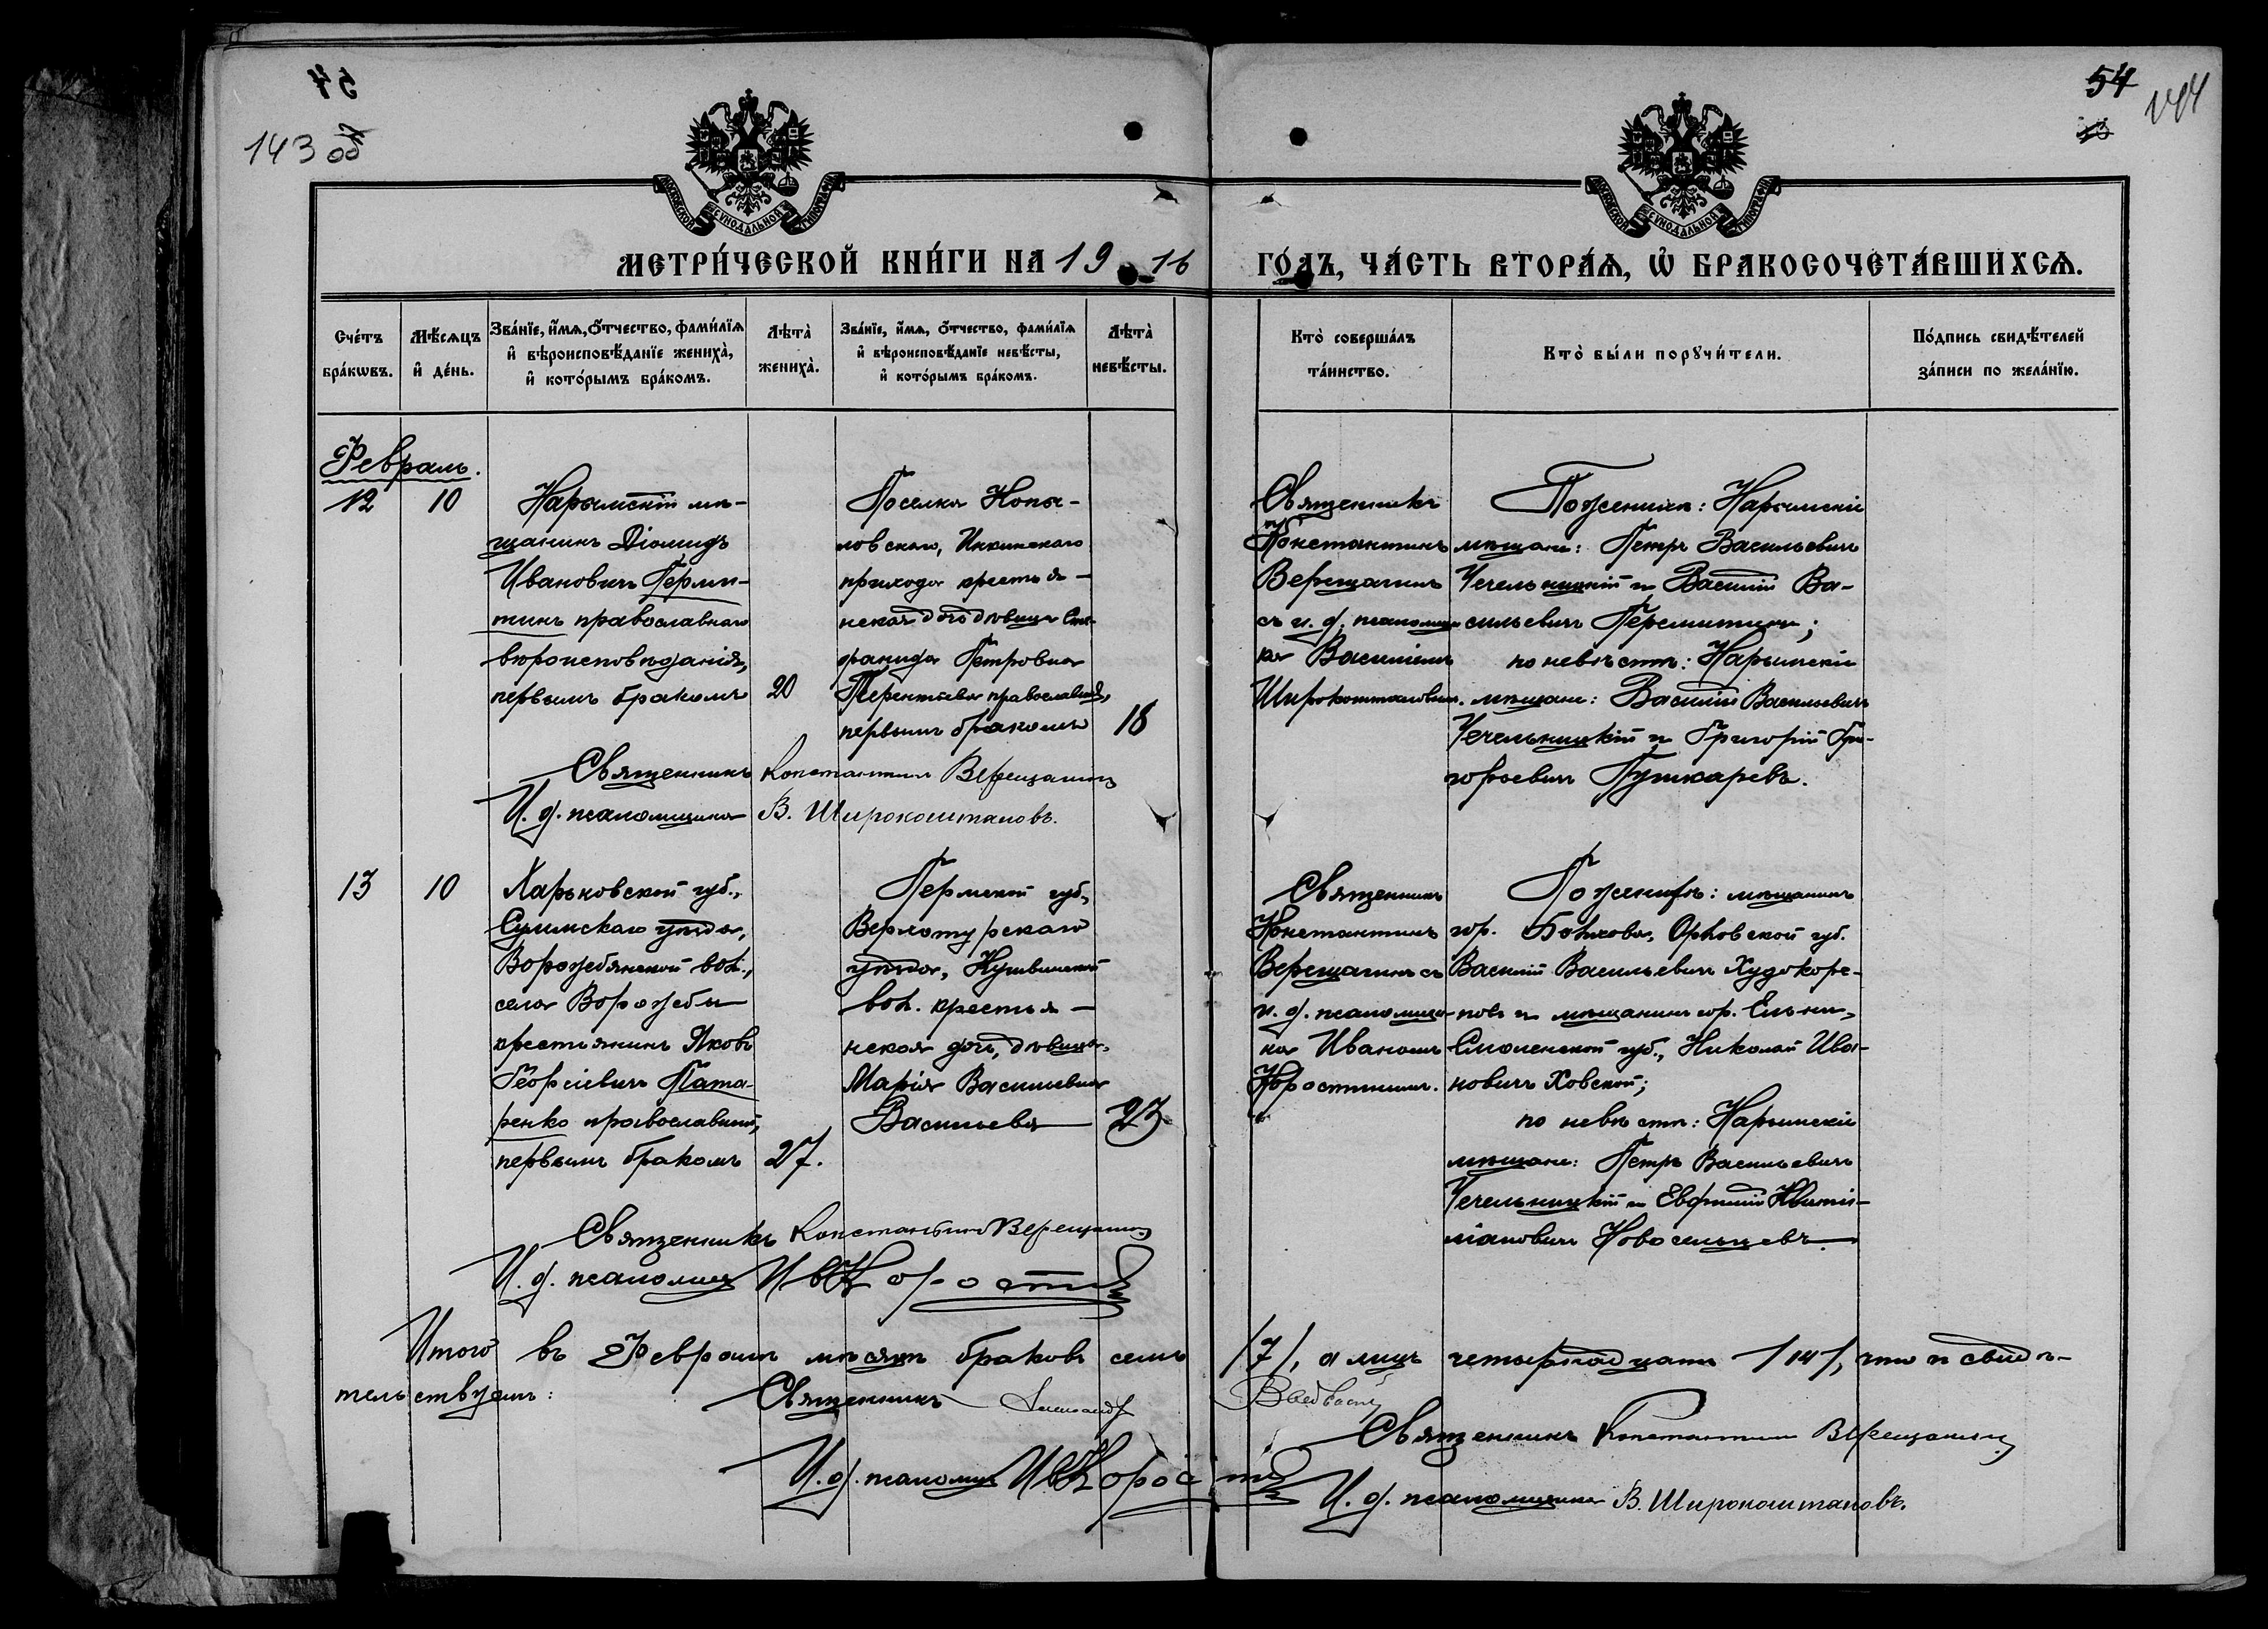 54
143 об
54
144
МОСКОВСКОЙ СѴНОДАЛЬНОЙ ТИПОГРАФІИ
МОСКОВСКОЙ СѴНОДАЛЬНОЙ ТИПОГРАФІИ
МЕТРИ́ЧЕСКОЙ КНИ́ГИ НА 19 16
ГО́ДЪ, ЧА́СТЬ ВТОРА́Ѧ, Ѡ҆ БРАКОСОЧЕТА́ВШИХСѦ.
Сче́тъ бра́кѡвъ.
Мѣ́сѧцъ и҆ де́нь.
Зва́нїе, и҆́мѧ, ѻ҆́тчество, фами́лїѧ и҆ вѣроисповѣ́данїе жениха̀, и҆ кото́рымъ бра́комъ.
Лѣта̀ жениха̀.
Зва́нїе, и҆́мѧ, ѻ҆́тчество, фами́лїѧ и҆ вѣроисповѣ́данїе невѣ́сты, и҆ кото́рымъ бра́комъ.
Лѣта̀ невѣ́сты.
Кто̀ соверша́лъ та́инство.
Кто̀ бы́ли порꙋчи́тели.
По́дпись свидѣ́телей за́писи по жела́нїю.
Февраль.
12
10
Нарымскій мѣ-
щанинъ Діомидъ
Ивановичъ Перми-
тинъ православнаго
вѣроисповѣданія,
первымъ бракомъ
20
Поселка Копы-
ловскаго, Инкинскаго
прихода крестья-
нская дочь дѣвица Сте-
фанида Петровна
Терентьева православная,
первымъ бракомъ
18
Священникъ
Константинъ
Верещагинъ
съ и. д. псаломщи-
ка Василіемъ
Широкоштановымъ.
По женихѣ: Нарымскіе
мѣщане: Петръ Васильевичъ
Чечельницкій и Василій Ва-
сильевичъ Перемитинъ;
по невѣстѣ: Нарымскіе
мѣщане: Василій Васильевичъ
Чечельницкій и Григорій Гри-
горьевичъ Пушкаревъ.
Священникъ Константинъ Верещагинъ
И. д. псаломщика В. Широкоштановъ.
13
10
Харьковской губ.,
Сумскаго уѣзда,
Ворожбянской вол.,
села Ворожбы
крестьянинъ Яковъ
Георгіевичъ Пата-
ренко православный,
первымъ бракомъ
27.
Пермской губ.,
Верхотурскаго
уѣзда, Кушвинской
вол. крестья-
нская дочь, дѣвица
Марія Васильевна
Васильева
23
Священникъ
Константинъ
Верещагинъ съ
и. д. псаломщи-
ка Иваномъ
Коростинымъ.
По женихѣ: мѣщанинъ
гор. Болхова, Орловской губ.
Василій Васильевичъ Худокор-
мовъ и мѣщанинъ гор. Ельни,
Смоленской губ., Николай Ива-
новичъ Ховской;
по невѣстѣ: Нарымскіе
мѣщане: Петръ Васильевичъ
Чечельницкій и Евфимій
Новосельцевъ.
Священникъ Константинъ Верещагинъ
И. д. псаломщ. Ив Коростинъ
Итого въ Февралѣ мѣсяцѣ браковъ семь /7/, а лицъ четырнадцать /14/, что и свидѣ-
тельствуемъ:
Священникъ Александръ
Священникъ Константинъ Верещагинъ
И. д. псаломщ. Ив Коростинъ
И. д. псаломщика В. Широкоштановъ.